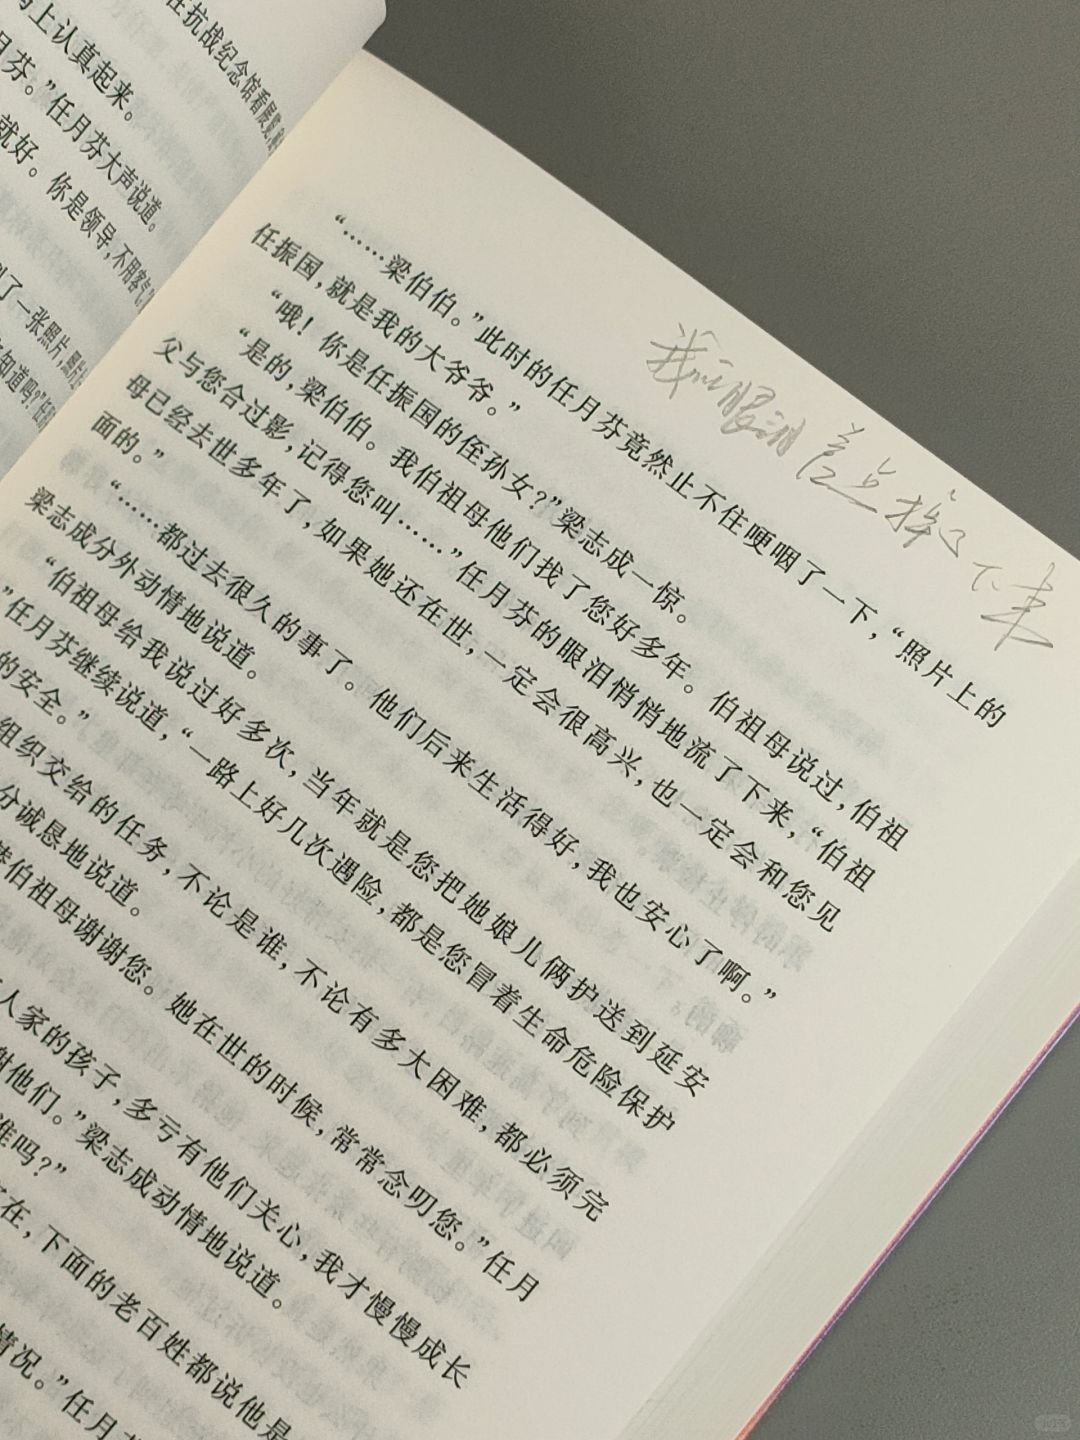 在抗战纪念馆看展览
马上认真起来。
月芬。”任月芬大声说道。
就好。你是领导，不用客气
了一张照片，
知道吗？”任
我的眼泪差点掉了下来
“……梁伯伯。”此时的任月芬竟然止不住哽咽了一下，“照片上的
任振国，就是我的大爷爷。”
“哦！你是任振国的侄孙女？”梁志成一惊。
“是的，梁伯伯。我伯祖母他们找了您好多年。伯祖母说过，伯祖
父与您合过影，记得您叫……”任月芬的眼泪悄悄地流了下来，“伯祖
母已经去世多年了，如果她还在世，一定会很高兴，也一定会和您见
面的。”
“……都过去很久的事了。他们后来生活得好，我也安心了啊。”
梁志成分外动情地说道。
“伯祖母给我说过好多次，当年就是您把她娘儿俩护送到延安
”任月芬继续说道，“一路上好几次遇险，都是您冒着生命危险保护
的安全。”
组织交给的任务，不论是谁，不论有多大困难，都必须完
分诚恳地说道。
替伯祖母谢谢您。她在世的时候，常常念叨您。”任月
人家的孩子，多亏有他们关心，我才慢慢成长
谢他们。”梁志成动情地说道。
谁吗？”
在，下面的老百姓都说他是
情况。”任月